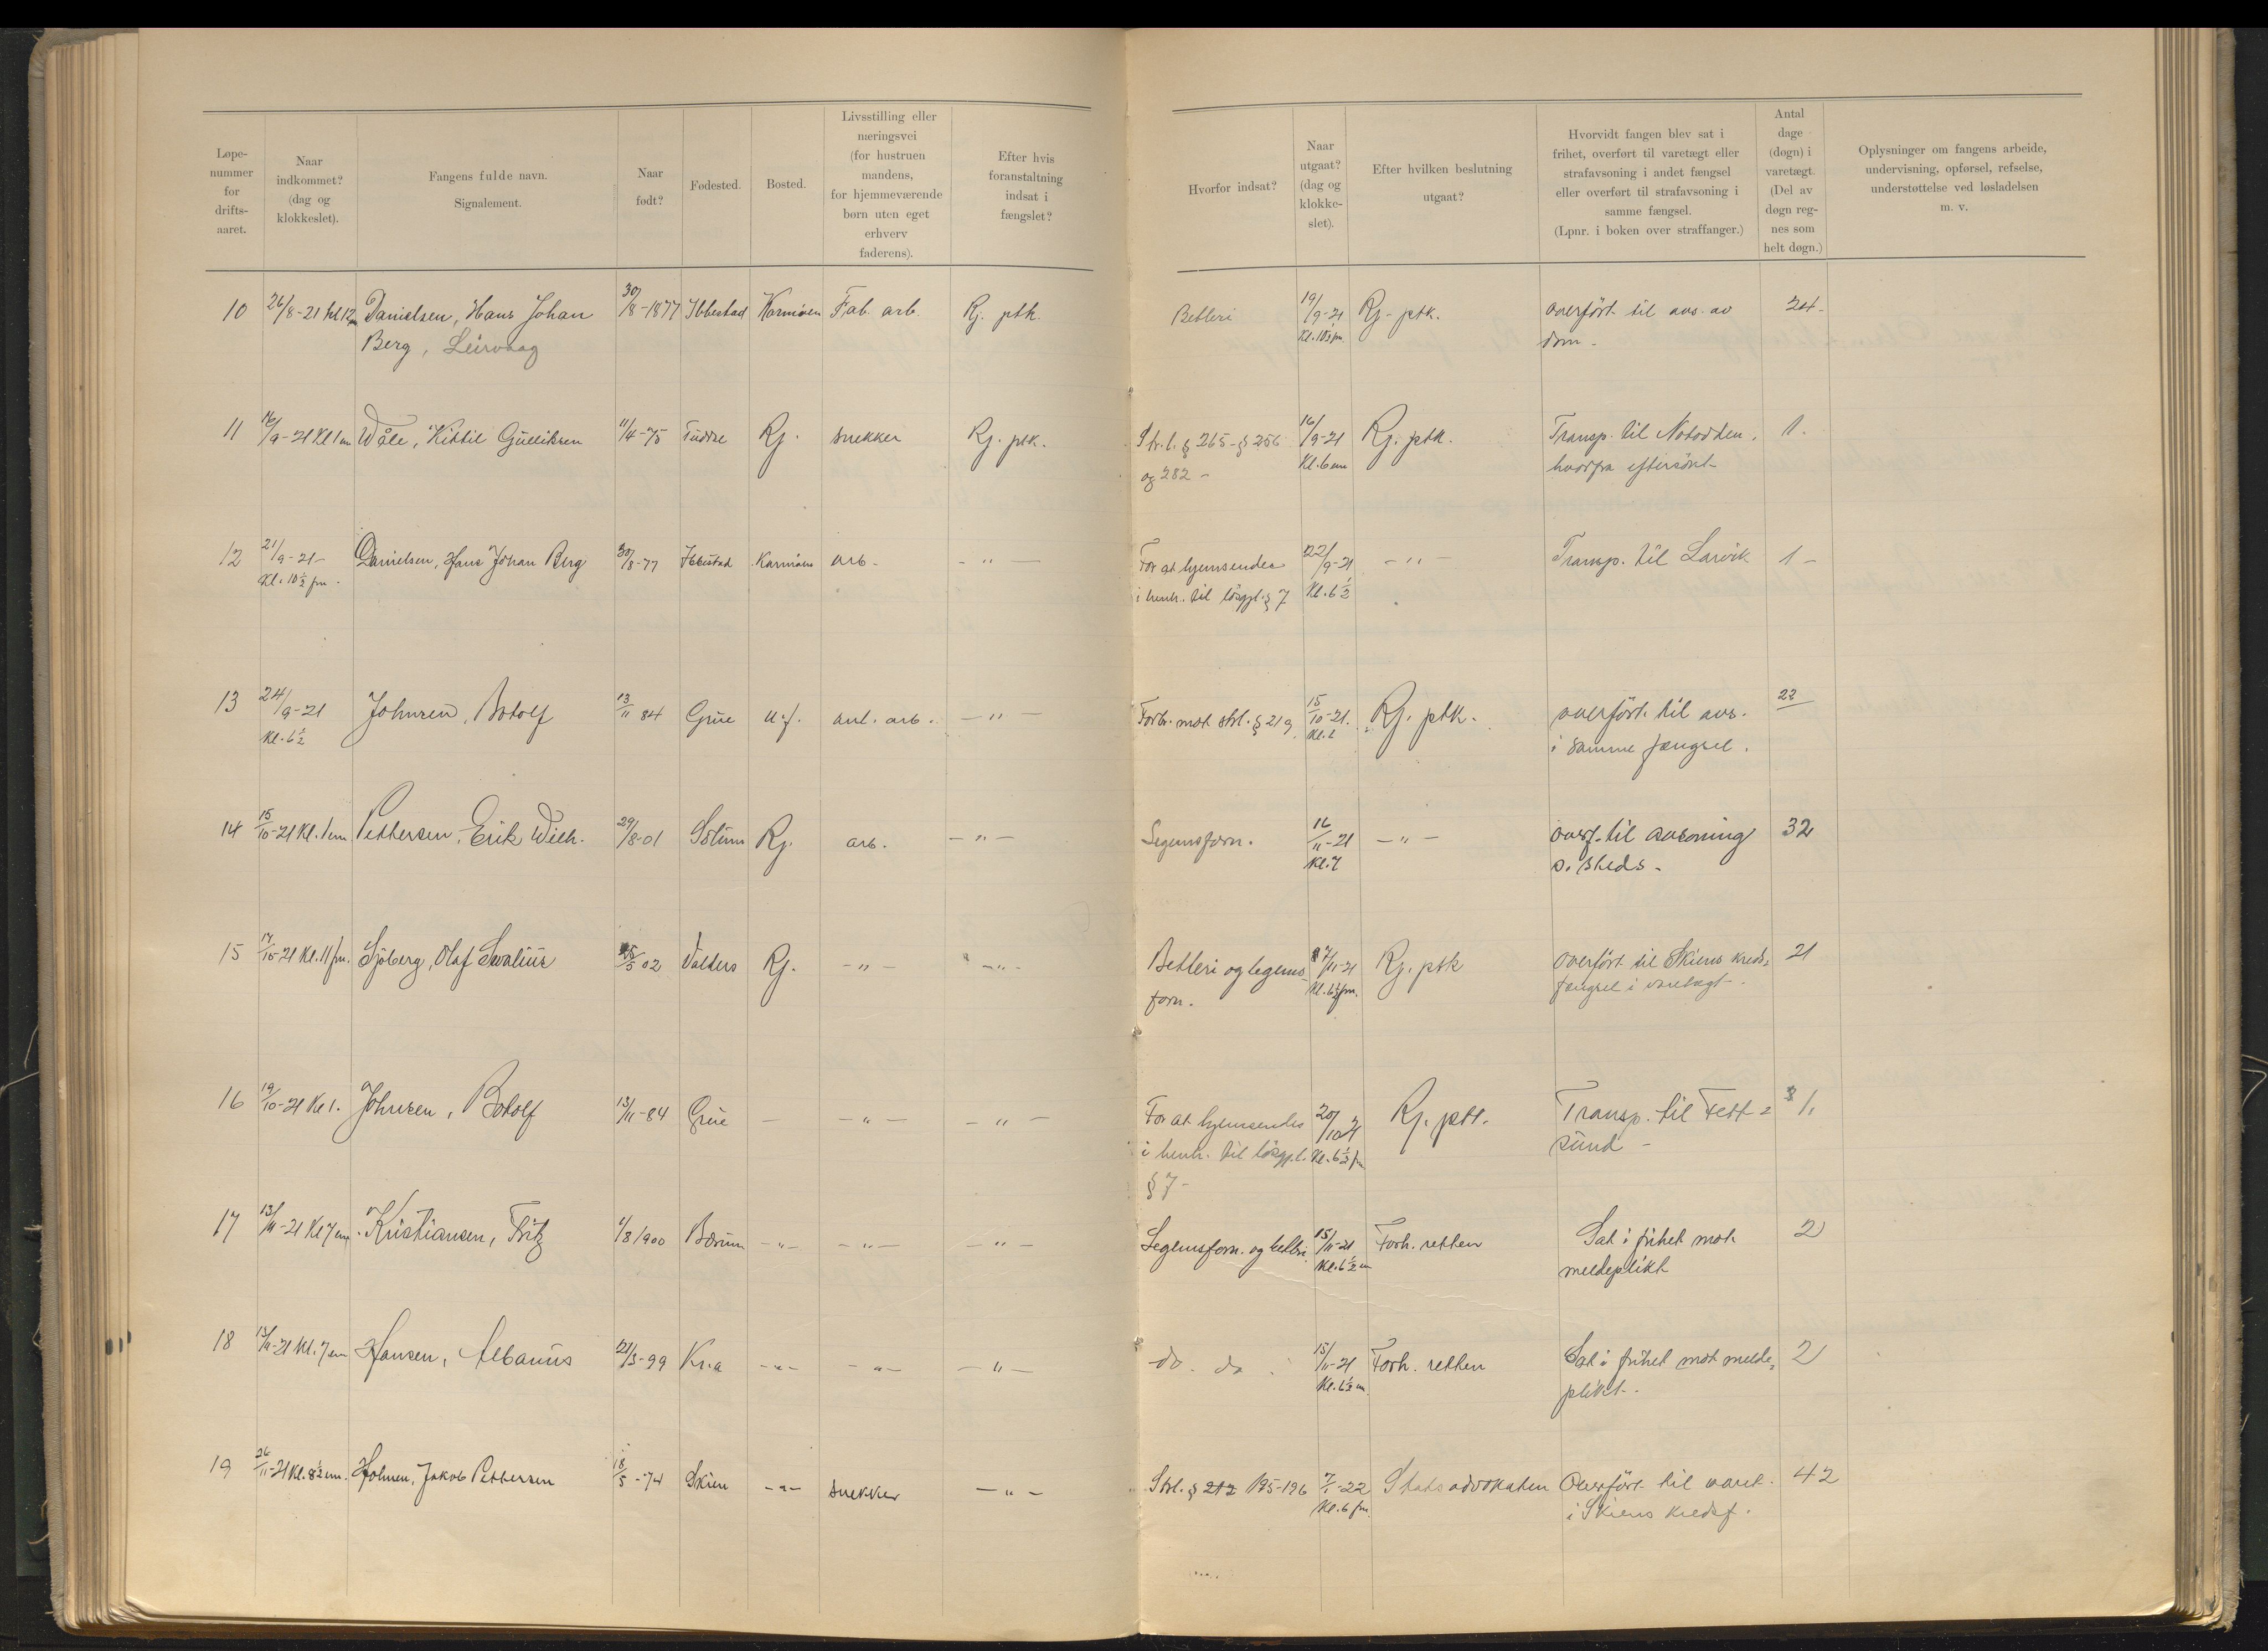 Løpe-
nummer
for
drifts-
aaret.
Naar
indkommet?
(dag og
klokkeslet).
Fangens fulde navn.
Signalement.
Naar
født?
Fødested.
Bosted.
Livsstilling eller
næringsvei
(for hustruen
mandens,
for hjemmeværende
børn uten eget
erhverv
faderens).
Efter hvis
foranstaltning
indsat i
fængslet?
Hvorfor indsat?
Naar
utgaat?
(dag og
klokke-
slet).
Efter hvilken beslutning
utgaat?
Hvorvidt fangen blev sat i
frihet, overført til varetægt eller
strafavsoning i andet fængsel
eller overført til strafavsoning i
samme fængsel.
(Lpnr. i boken over straffanger.)
Antal
dage
(døgn) i
varetægt.
(Del av
døgn reg-
nes som
helt døgn.)
Oplysninger om fangens arbeide,
undervisning, opførsel, refselse,
understøttelse ved løsladelsen
m. v.
10 26/8-21 kl 12 Danielsen, Hans Johan 30/8-1877 Ibbestad Karmöen Fab. arb. Rj. ptk. Betleri 19/9-21 Rj-ptk. overført til avs. av 24-
Berg, Leirvaag dom-
11 16/9-21 Kl 1 em Wåle, Kittil Gulliksen 11/4-75 Tudde Rj. snekker Rj. ptk. Str. l. § 265-§ 256 16/9-21 Rj. ptk. Transp. til Notodden, 1.
og 282 - Kl. 6 em hvorfra eftersökt-
12 21/9-21- Danielsen, Hans Johan Berg 30/8-77 Ibbestad Karmöen arb- -"- For at hjemsendes 22/9-21 -"- Transp. til Larvik 1-
Kl. 10½ fm. i henh. til lösgjl. § 7 Kl. 6½
13 24/9-21 Johnsen, Botolf 13/11 84 Grue u.f. anl. arb. -"- Forbr. mot strl. § 219. 15/10-21. Rj. ptk. overført til avs. 22
Kl. 6½ i samme fængsel.
14 15/10-21 Kl. 1 em Pettersen, Erik Wilh. 29/8-01 Solum Rj. arb. -"- Legemsforn. 16/11-21 -"- overf. til avsoning 32
Kl. 7 s. steds-
15 17/10-21 Kl. 11 fm. Sjöberg, Olaf 25/5 02 Valders Rj. -"- -"- Betleri og legems- 7/11-21 Rj. ptk overført til Skiens kreds= 21
forn. Kl. 6½ fm. fængsel i varetægt-.
16 19/10-21 Kl 1. Johnsen, Botolf 13/11-84 Grue - -"- -"- For at hjemsendes 20/10 21 Rj. ptk. Transp. til Fett= 1.
i henh. til lösgj.l. Kl. 6½ fm sund -
§ 7-
17 13/11-21 Kl 7 em. Kristiansen, Fritz 1/8 1900 Bærum -"- -"- -"- Legemsforn. og betleri. 15/11-21 Forh. retten Sat i frihet mot 2
Kl. 6½ em meldeplikt
18 13/11-21 Kl. 7 em Hansen, Albanus 21/3-99 Kr.a -"- -"- -"- do. do. 15/11-21 Forh. retten Sat i frihet mot melde= 2
Kl. 6½ em. plikt-.
19 26/11-21 Kl. 8½ em. Holmen, Jakob Pettersen 18/5-74 Skien -"- snekker -"- Strl. § 212 195-196 7/1-22 Statsadvokaten Overført til varet. 42
Kl. 6 fm. i Skiens kredsf.